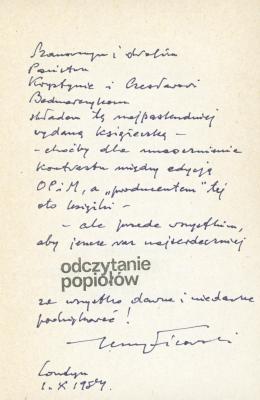 Szanownym i drogim
Państwu
Krystynie i Czesławowi
Bednarczykom
składam tę najpaskudniej
wydaną książeczkę –
– choćby dla umocnienia
kontrastu między edycją
OPiM, a „producentem” tej
oto książki –
– ale przede wszystkim,
aby jeszcze raz najserdeczniej
odczytanie
popiołów
za wszystko dawne i niedawne
podziękować!
Jerzy Ficowski
Londyn
1. X 1984.